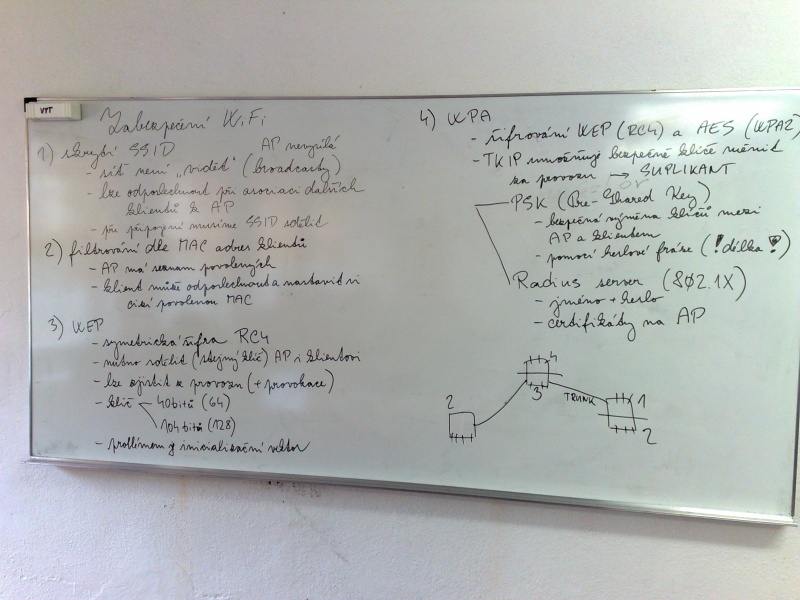 VYT
Zabezpečení WiFi
1) skrytí SSID AP nevysílá
- síť není „vidět“ (broadcasty)
- lze odposlechnout při asociaci dalších
klientů k AP
- při připojení musíme SSID sdělit
2) filtrování dle MAC adres klientů
- AP má seznam povolených
- klient může odposlechnout a nastavit si
cizí povolenou MAC
3) WEP
- symetrická šifra RC4
- nutno sdělit (stejný klíč) AP i klientovi
- lze zjistit z provozu (+ provokace)
- klíč 40 bitů (64)
104 bitů (128)
- problémem je inicializační vektor
4) WPA
- šifrování WEP (RC4) a AES (WPA2)
- TKIP umožňuje bezpečně klíče měnit
za provozu → SUPLIKANT
PSK (Pre-Shared Key)
- bezpečná výměna klíčů mezi
AP a klientem
- pomocí heslové fráze (! délka !)
Radius server (802.1X)
- jméno + heslo
- certifikáty na AP
4
3
2
TRUNK
1
2